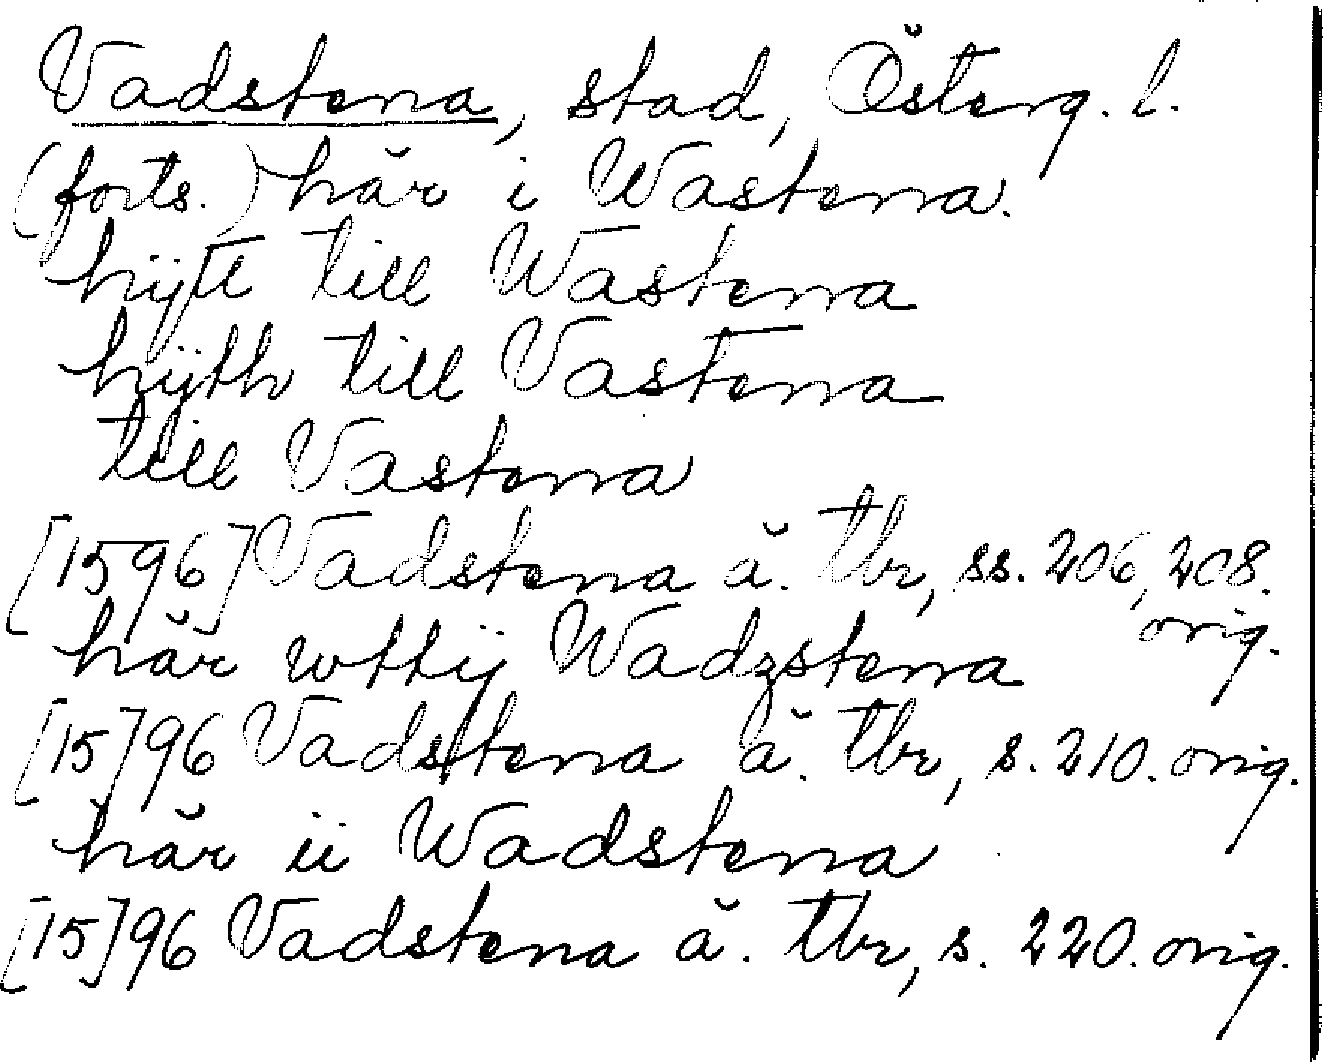 Vadstena, stad, Österg. l.
(forts.) här i Wastena.
hijtt till Wastena
hijth till Vastena
till Vastena
[1596] Vadstena ä. tbr, ss. 206, 208. orig.
här wttij Wadzstena
[15]96 Vadstena ä. tbr, s. 210. orig.
här ii Wadstena
[15]96 Vadstena ä. tbr, s. 220. orig.